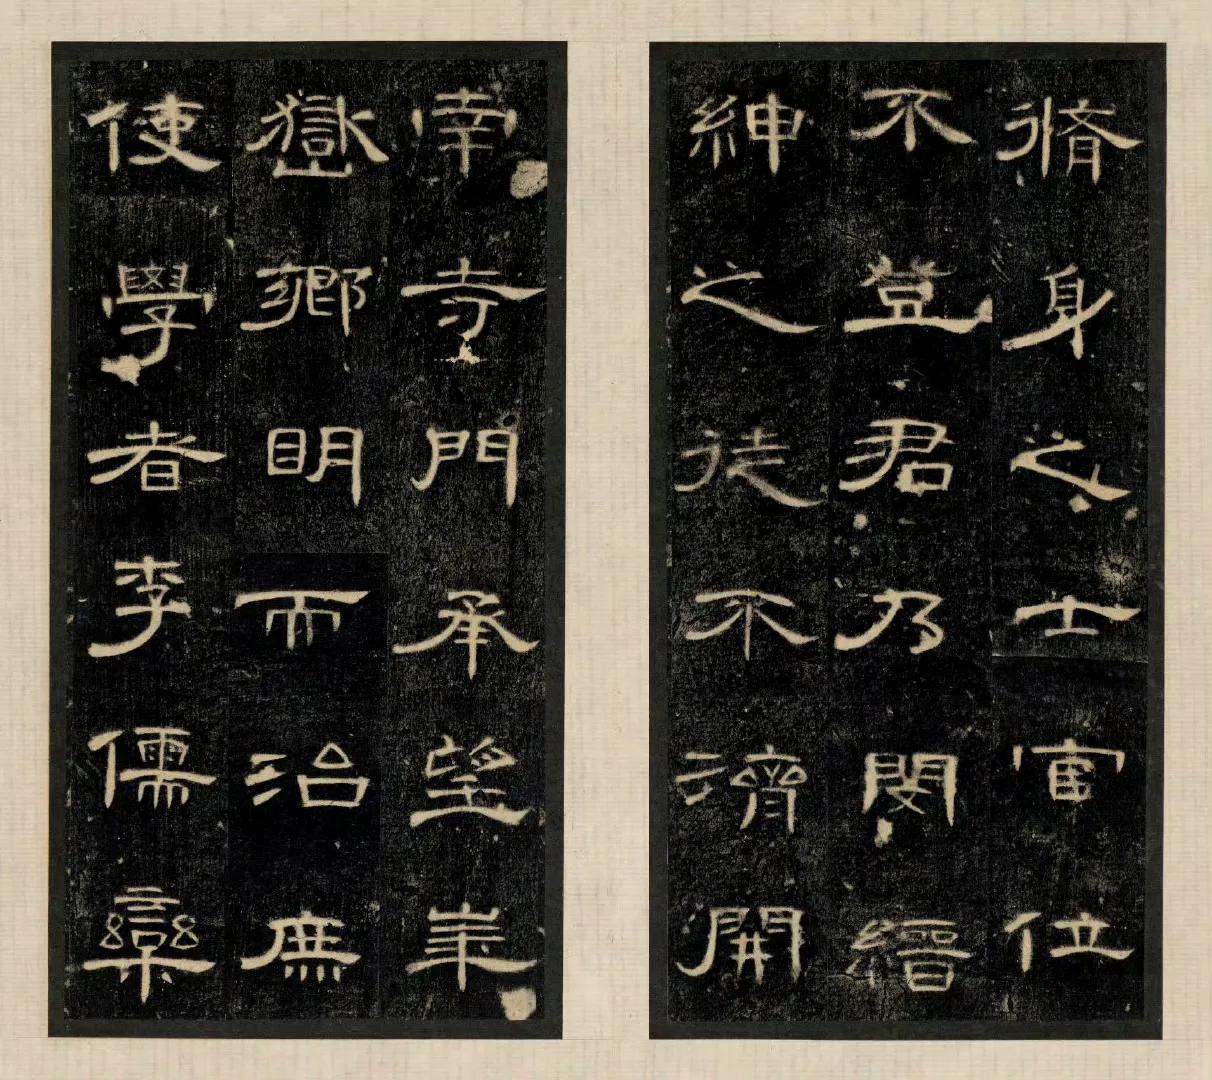 脩身之士官位
不登君乃閔縉
紳之徒不濟開
南寺門承望華
嶽鄉明而治庶
使學者李儒欒